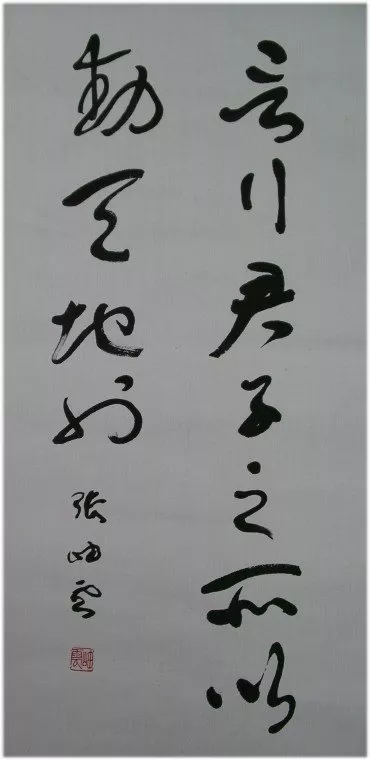 言行君子之所以
動天地也
張岫雲